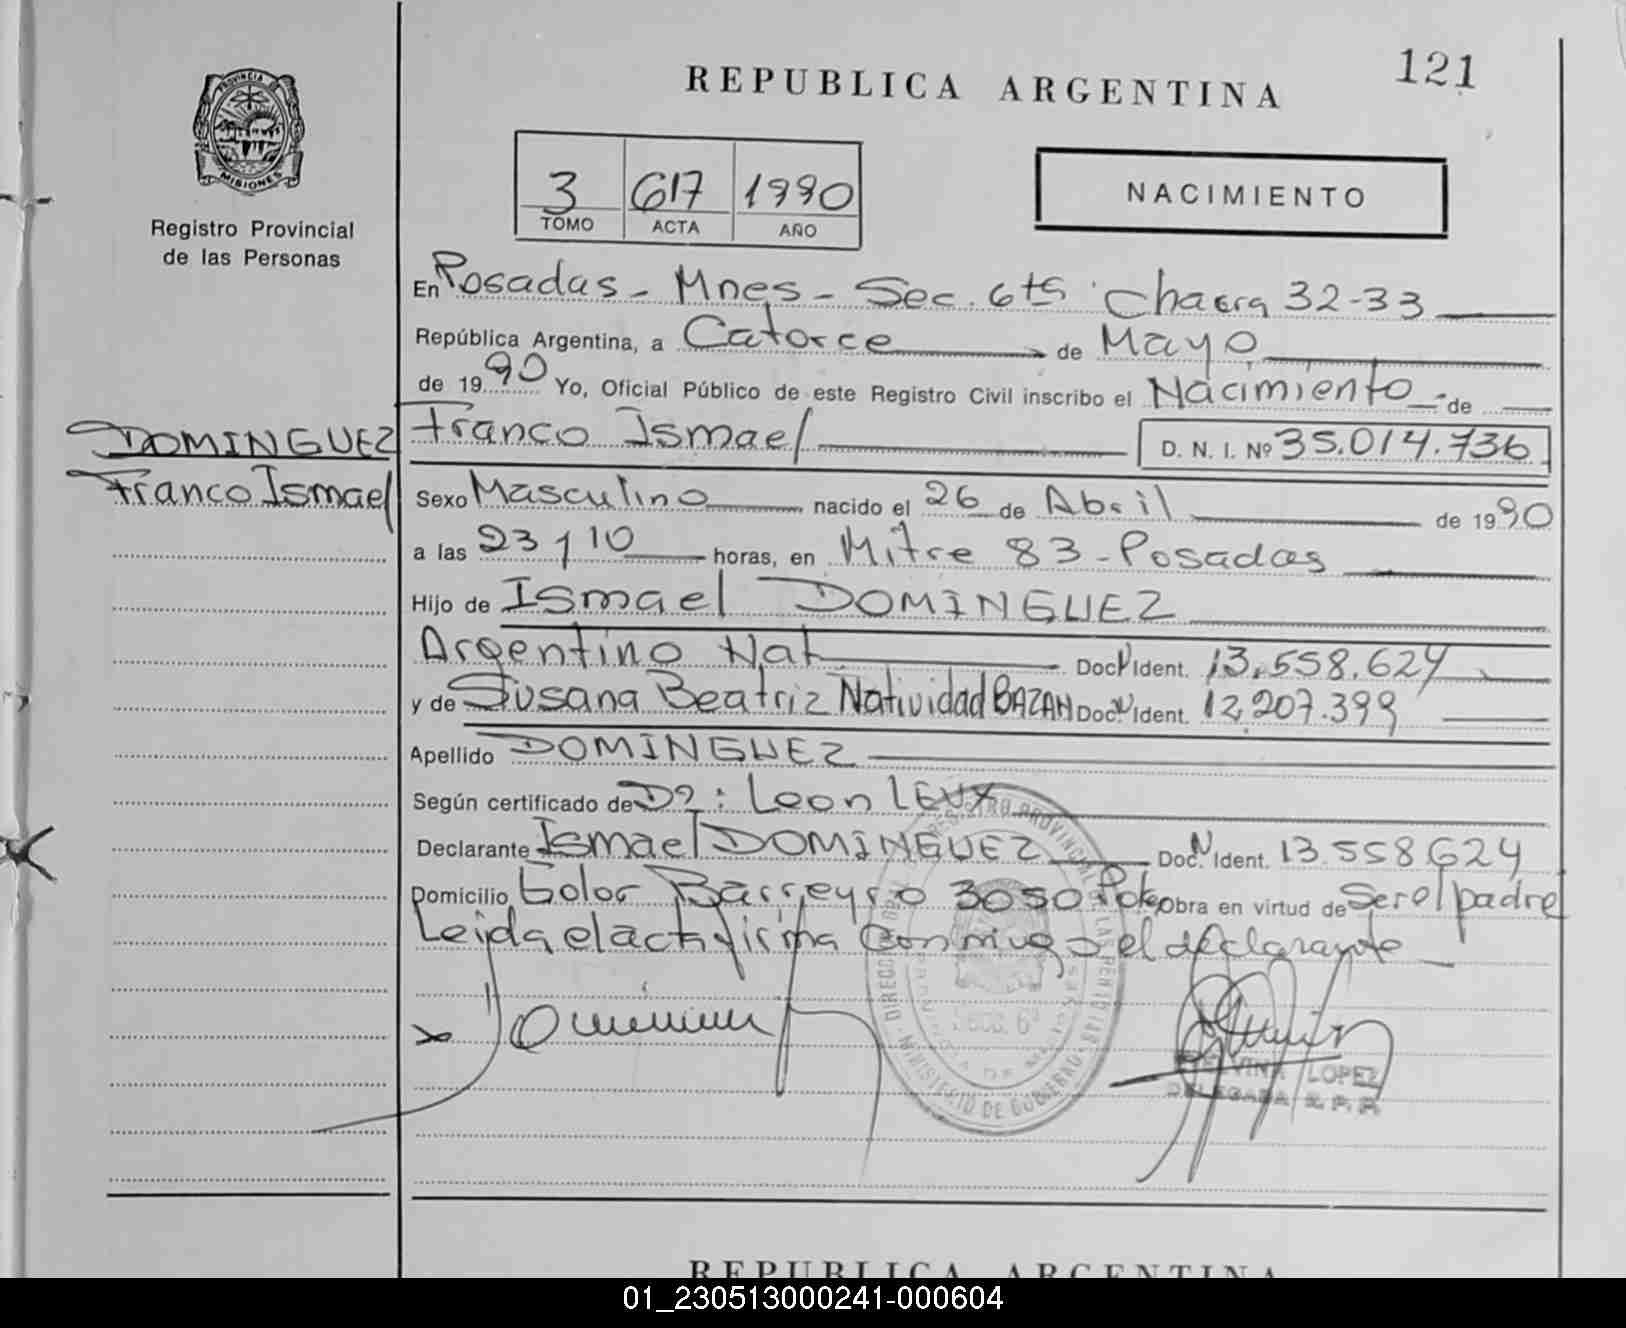 121
REPUBLICA ARGENTINA
PROVINCIA DE
MISIONES
Registro Provincial
de las Personas
3 617 1990
TOMO ACTA AÑO
NACIMIENTO
En Posadas - Mnes - Sec. 6ta Chacra 32-33
República Argentina, a Catorce de Mayo
de 1990 Yo, Oficial Público de este Registro Civil inscribo el Nacimiento de
DOMINGUEZ
Franco Ismael
Franco Ismael D. N. I. Nº 35.014.736
Sexo Masculino nacido el 26 de Abril de 1990
a las 23 y 10 horas, en Mitre 83 - Posadas
Hijo de Ismael DOMINGUEZ
Argentino Nat. Doc. N Ident. 13.558.624
y de Susana Beatriz Natividad BAZAN Doc. N Ident. 12.207.399
Apellido DOMINGUEZ
Según certificado de Dr: Leon LEUX
Declarante Ismael DOMINGUEZ Doc. N Ident. 13.558624
Domicilio Barreyro 3050 Obra en virtud de Ser el padre
Leida el acta firma conmigo el declarante
DIRECCION REGISTRO PROVINCIAL DE LAS PERSONAS
MINISTERIO DE GOBIERNO
SECC. 6ª
LOPEZ
DELEGADA R. P. P.
REPUBLICA ARGENTINA
01_230513000241-000604